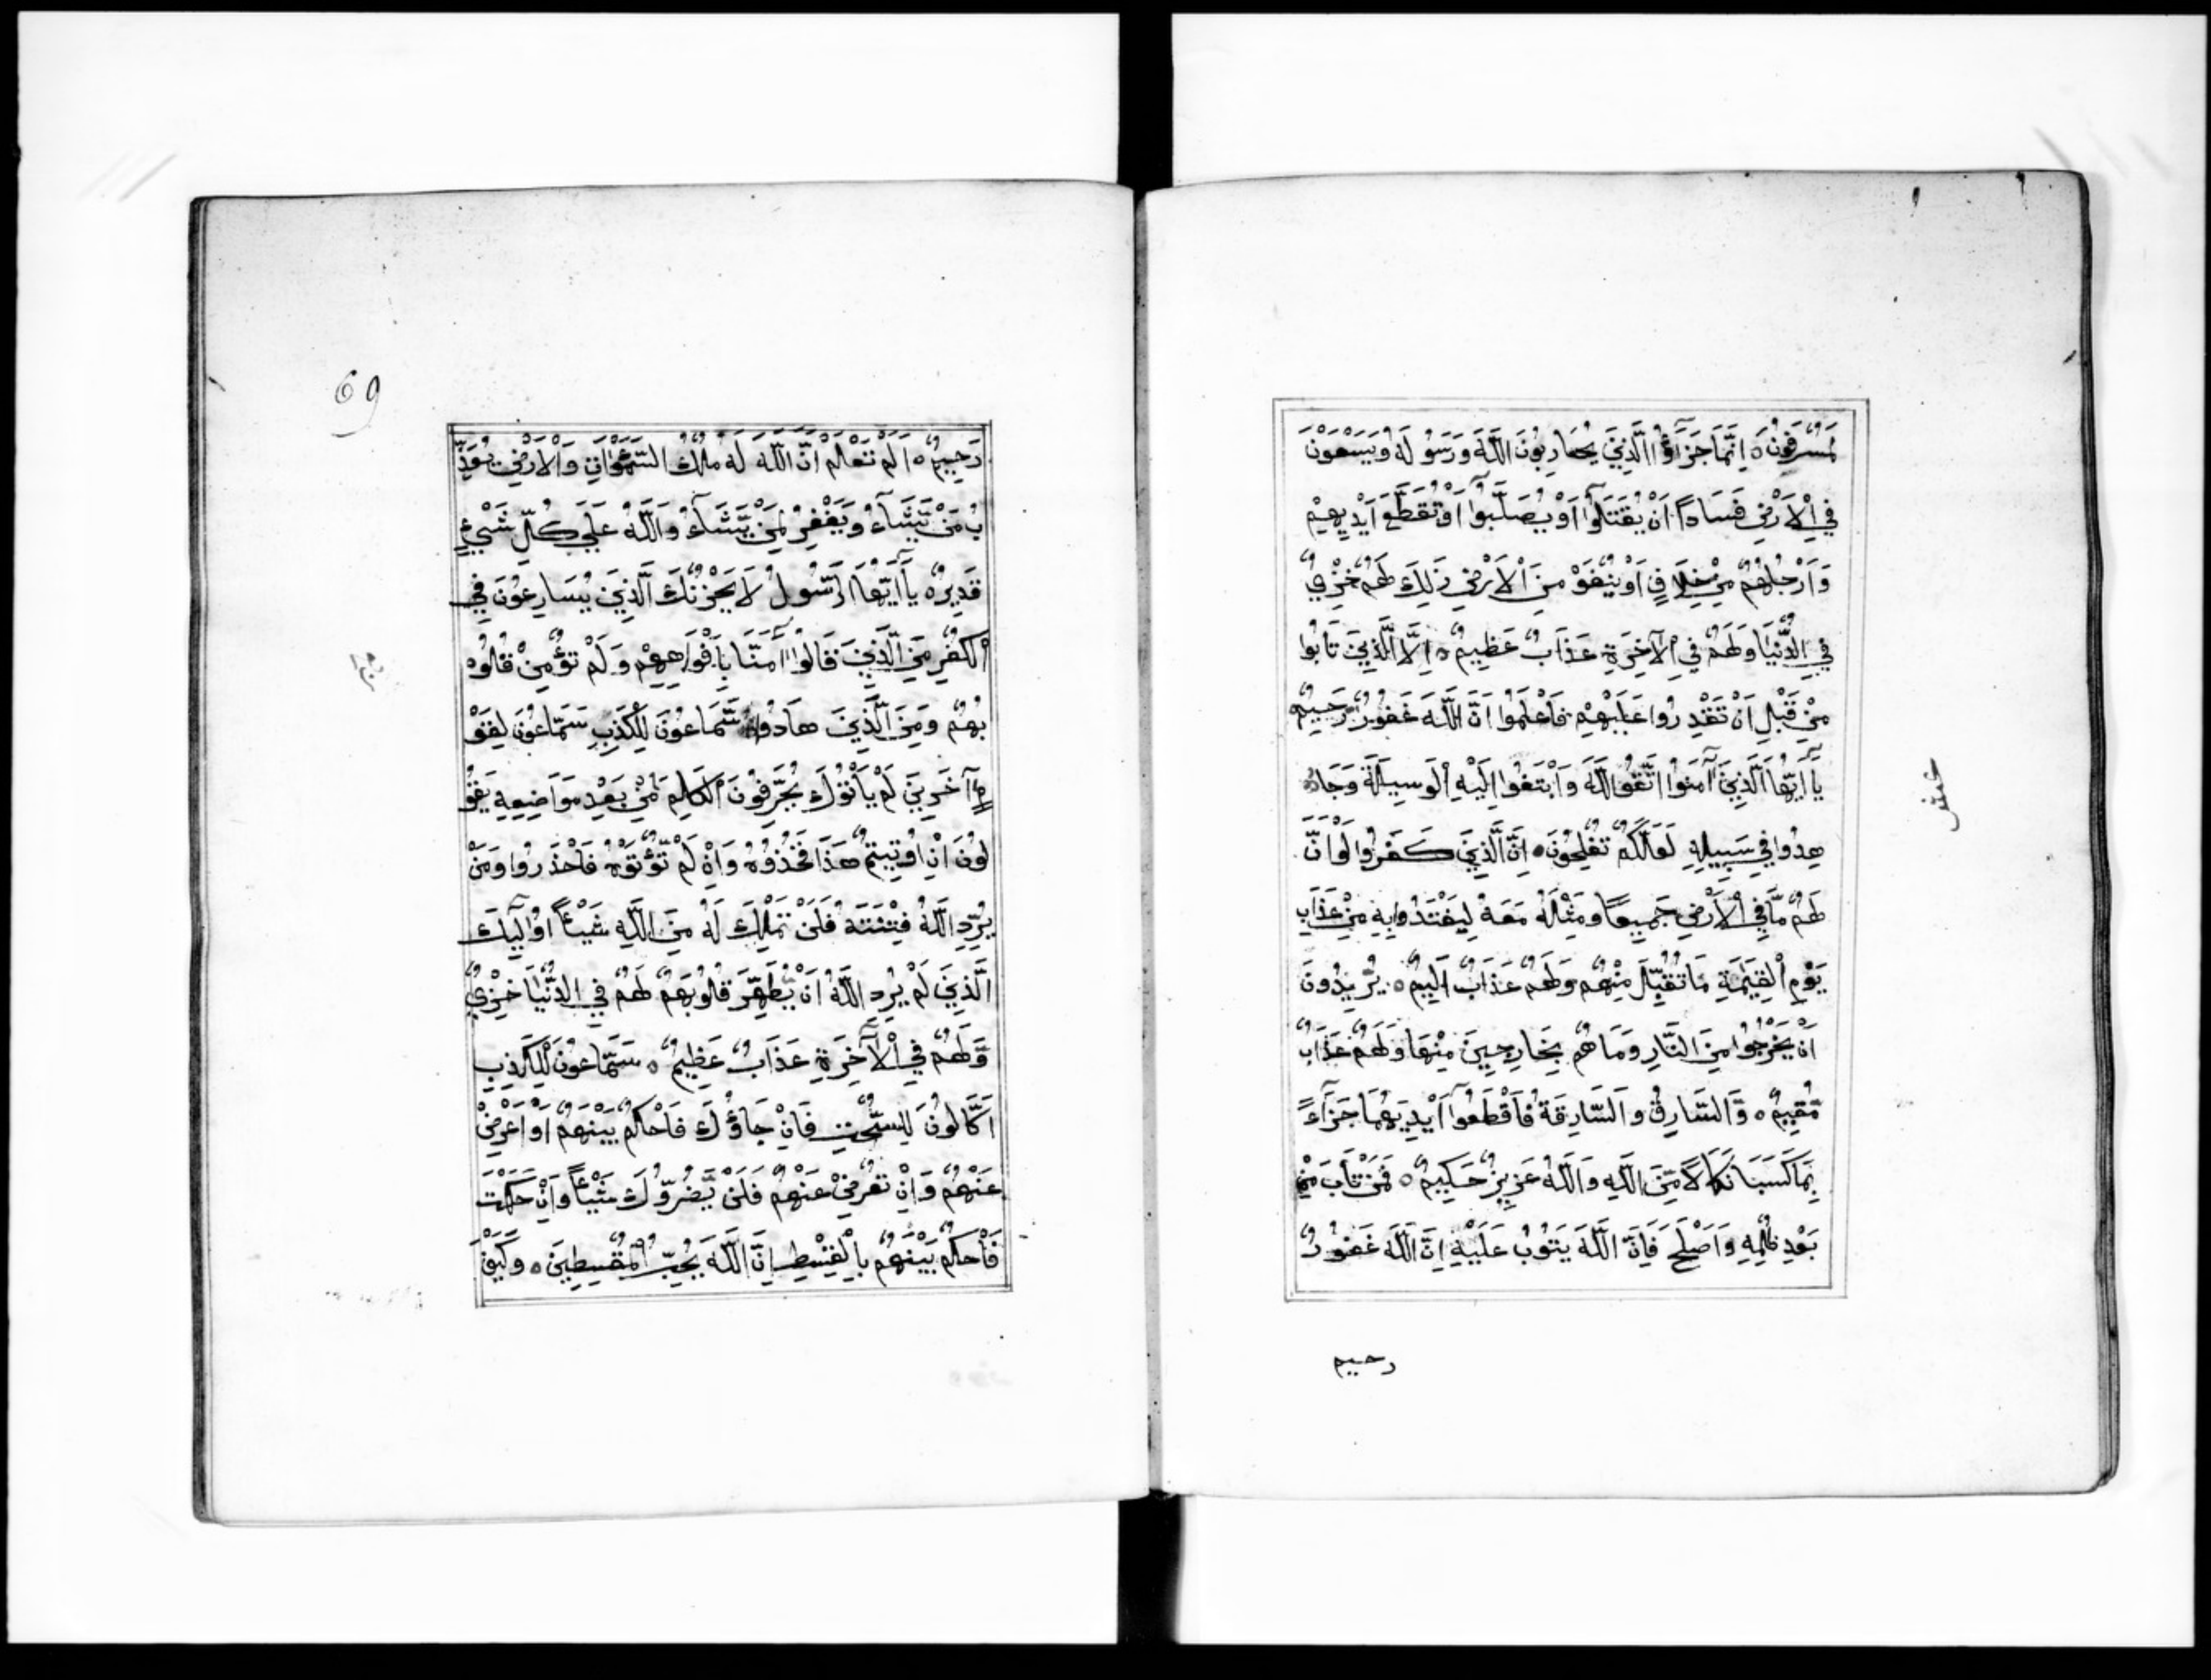 لَمُسْرِفُونَ ۝ اِنَّمَا جَزَآؤُا الَّذِيْنَ يُحَارِبُونَ اللَّهَ وَرَسُولَهُ وَيَسْعَوْنَ
فِي الْاَرْضِ فَسَاداً اَنْ يُقَتَّلُوآ اَوْ يُصَلَّبُوآ اَوْ تُقَطَّعَ اَيْدِيهِمْ
وَاَرْجُلُهُمْ مِنْ خِلَافٍ اَوْ يُنْفَوْ مِنَ الْاَرْضِ ذَلِكَ لَهُمْ خِزْيٌ
فِي الدُّنْيَا وَلَهُمْ فِي الْآخِرَةِ عَذَابٌ عَظِيمٌ ۝ اِلَّا الَّذِيْنَ تَابُوا
مِنْ قَبْلِ اَنْ تَقْدِرُوا عَلَيْهِمْ فَاعْلَمُوا اَنَّ اللَّهَ غَفُورٌ رَّحِيمٌ
يَآ اَيُّهَا الَّذِيْنَ آمَنُوا اتَّقُوا اللَّهَ وَابْتَغُوا اِلَيْهِ الْوَسِيلَةَ وَجَا
هِدُوا فِي سَبِيلِهِ لَعَلَّكُمْ تُفْلِحُونَ ۝ اِنَّ الَّذِيْنَ كَفَرُوا لَوْ اَنَّ
لَهُمْ مَّا فِي الْاَرْضِ جَمِيعًا وَمِثْلَهُ مَعَهُ لِيَفْتَدُوا بِهِ مِنْ عَذَابِ
يَوْمِ الْقِيَمَةِ مَا تُقُبِّلَ مِنْهُمْ وَلَهُمْ عَذَابٌ اَلِيمٌ ۝ يُرِيدُونَ
اَنْ يَخْرُجُوا مِنَ النَّارِ وَمَا هُمْ بِخَارِجِينَ مِنْهَا وَلَهُمْ عَذَابٌ
مُّقِيمٌ ۝ وَّالسَّارِقُ وَالسَّارِقَةُ فَاقْطَعُوآ اَيْدِيَهُمَا جَزَآءً
بِمَا كَسَبَا نَكَالًا مِّنَ اللَّهِ وَاللَّهُ عَزِيزٌ حَكِيمٌ ۝ فَمَنْ تَابَ مِنْ
بَعْدِ ظُلْمِهِ وَاَصْلَحَ فَاِنَّ اللَّهَ يَتُوبُ عَلَيْهِ اِنَّ اللَّهَ غَفُورٌ
رحيم
69
رَحِيمٌ ۝ اَلَمْ تَعْلَمْ اَنَّ اللَّهَ لَهُ مُلْكُ السَّمَوَاتِ وَالْاَرْضِ يُعَذِّ
بُ مَنْ يَّشَآءُ وَيَغْفِرُ لِمَنْ يَّشَآءُ وَاللَّهُ عَلَى كُلِّ شَيْءٍ
قَدِيرٌ ۝ يَآ اَيُّهَا الرَّسُولُ لَا يَحْزُنْكَ الَّذِيْنَ يُسَارِعُونَ فِي
الْكُفْرِ مِنَ الَّذِيْنَ قَالُوا آمَنَّا بِاَفْوَاهِهِمْ وَلَمْ تُؤْمِنْ قُلُو
بُهُمْ وَمِنَ الَّذِيْنَ هَادُوا سَمَّاعُونَ لِلْكَذِبِ سَمَّاعُونَ لِقَوْ
مٍ آخَرِينَ لَمْ يَأْتُوْكَ يُحَرِّفُونَ الْكَلِمَ مِنْ بَعْدِ مَوَاضِعِهِ يَقُو
لُونَ اِنْ اُوتِيتُمْ هَذَا فَخُذُوهُ وَاِنْ لَّمْ تُؤْتَوْهُ فَاحْذَرُوا وَمَنْ
يُّرِدِ اللَّهُ فِتْنَتَهُ فَلَنْ تَمْلِكَ لَهُ مِنَ اللَّهِ شَيْئاً اُولَآئِكَ
الَّذِيْنَ لَمْ يُرِدِ اللَّهُ اَنْ يُّطَهِّرَ قُلُوبَهُمْ لَهُمْ فِي الدُّنْيَا خِزْيٌ
وَّلَهُمْ فِي الْآخِرَةِ عَذَابٌ عَظِيمٌ ۝ سَمَّاعُونَ لِلْكَذِبِ
اَكَّالُونَ لِلسُّحْتِ فَاِنْ جَاؤُكَ فَاحْكُمْ بَيْنَهُمْ اَوْ اَعْرِضْ
عَنْهُمْ وَاِنْ تُعْرِضْ عَنْهُمْ فَلَنْ يَّضُرُّوكَ شَيْئاً وَاِنْ حَكَمْتَ
فَاحْكُمْ بَيْنَهُمْ بِالْقِسْطِ اِنَّ اللَّهَ يُحِبُّ الْمُقْسِطِينَ ۝ وَكَيْفَ